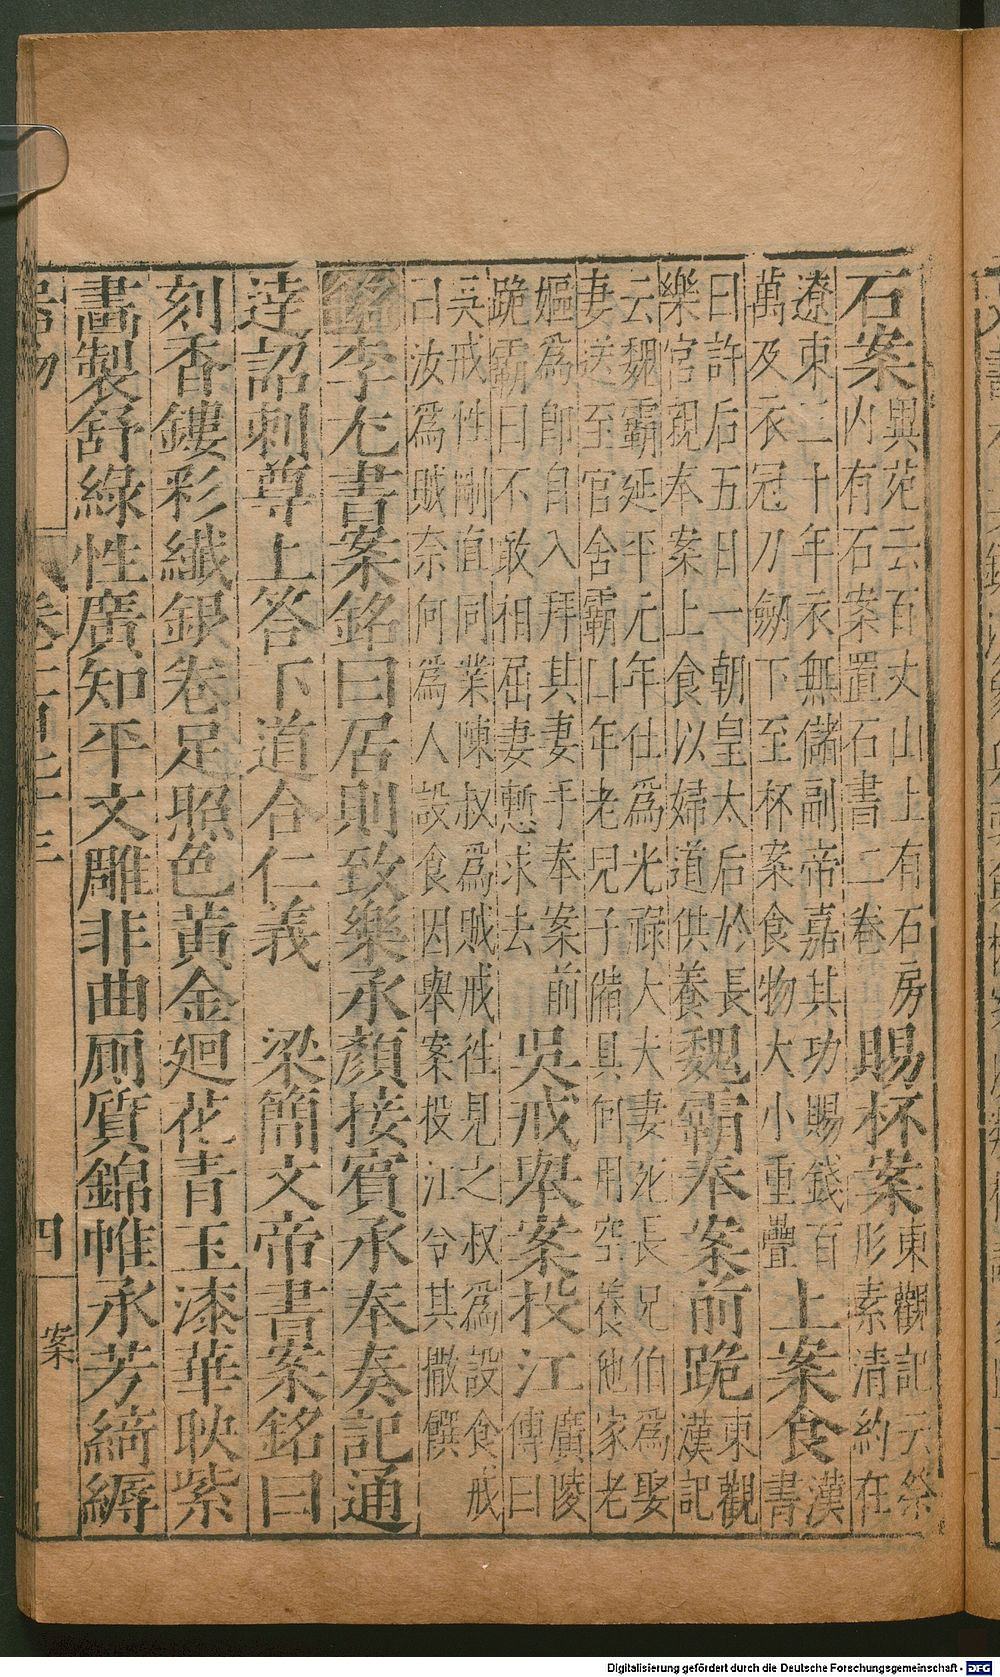 石案 異苑云百丈山上有石房
内有石案置石書二卷 賜杯案 東觀記云祭
形素清約在
遼東二十年衣無儲副帝嘉其功賜錢百
萬及衣冠刀劒下至杯案食物大小重疊 上案食 漢
書
曰許后五日一朝皇太后於長
樂宫親奉案上食以婦道供養 魏霸奉案前跪 東觀
漢記
云魏霸延平元年仕爲光祿大大妻死長兄伯爲娶
妻送至官舍霸曰年老兒子備具何用空養他家老
嫗爲即自入拜其妻手奉案前
跪霸曰不敢相屈妻慙求去 吳戒舉案投江 廣陵
傳曰
吳戒性剛直同業陳叔爲賊戒徃見之叔爲設食戒
曰汝爲賊奈何爲人設食因舉案投江令其撒饌
銘 李尤書案銘曰居則致樂承顏接賓承奉奏記通
達詔刺尊上答下道合仁義 梁簡文帝書案銘曰
刻香鏤彩纎銀卷足照色黃金廻花青玉漆華映紫
畵製舒綠性廣知平文雕非曲厠質錦帷承芳綺縟
四 案
Digitalisierung gefördert durch die Deutsche Forschungsgemeinschaft - DFG